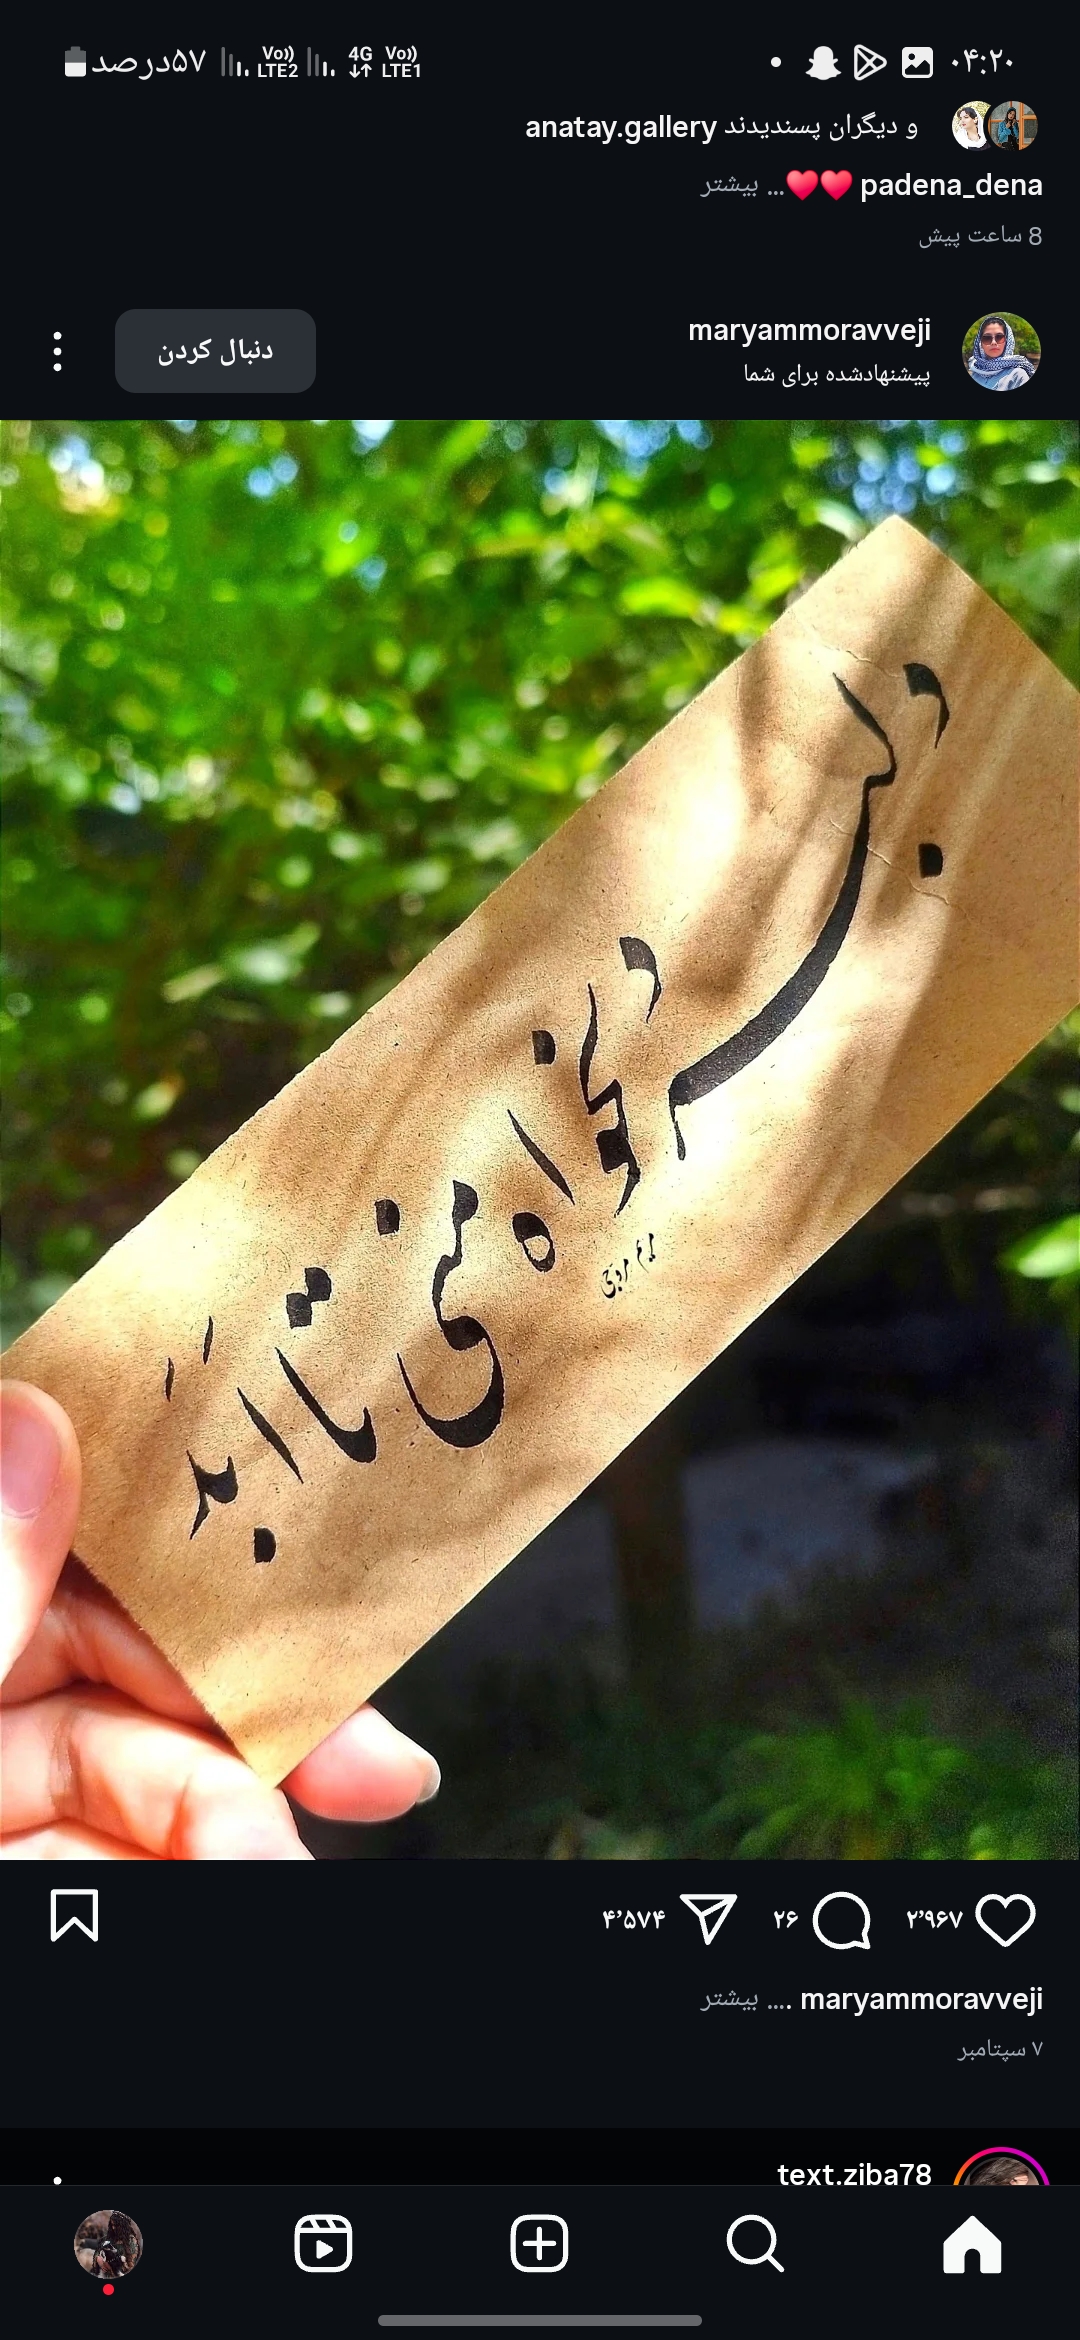 ۰۴:۲۰
Vo)) LTE1 4G Vo)) LTE2 ۵۷درصد
anatay.gallery و دیگران پسندیدند
padena_dena ♥️♥️... بیشتر
8 ساعت پیش
maryammoravveji
پیشنهادشده برای شما
دنبال کردن
دلبر
دلخواه منی تا ابد
مریم مروجی
۲٬۹۶۷ ۲۶ ۴٬۵۷۴
maryammoravveji .... بیشتر
۷ سپتامبر
text.ziba78